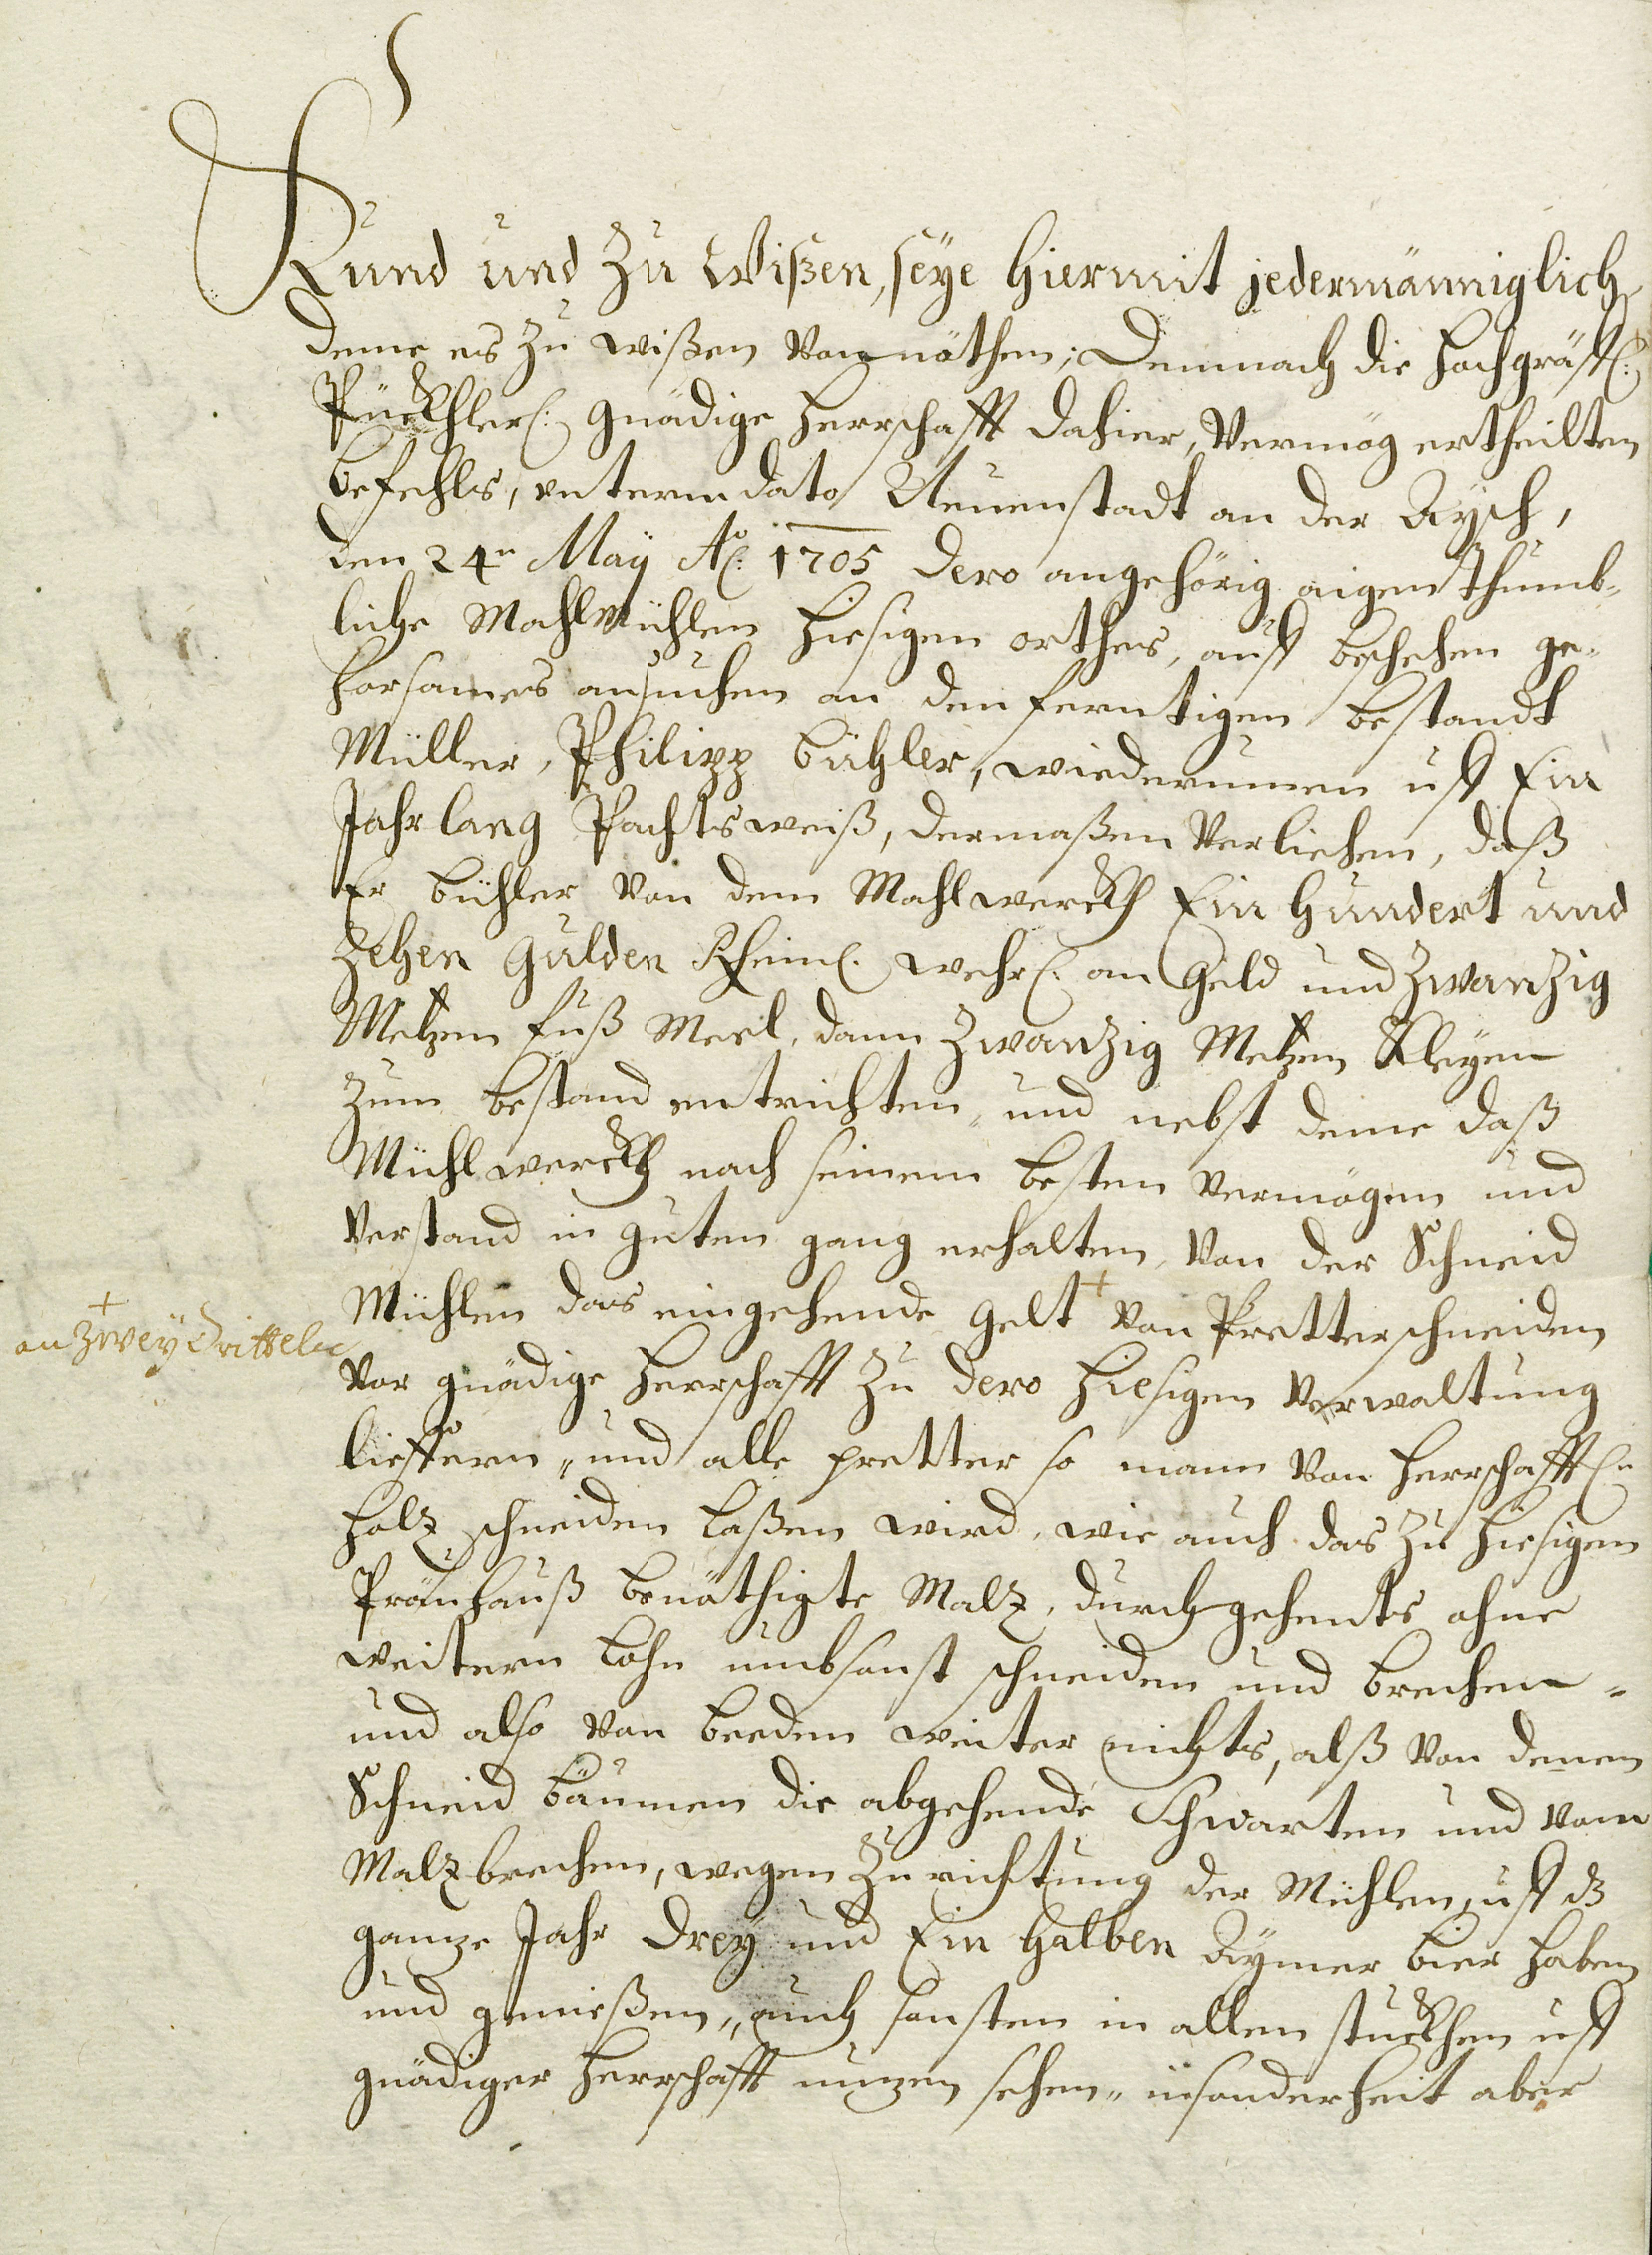 Kund und Zu Wißen, seye hiermit jedermänniglich,
deme es Zu wißen Von nöthen; Demnach die hochgräfl:
Pückhler: gnädige Herrschafft dahier, Vermög ertheilten
befehls, unterm dato Neuenstadt an der Aysch,
den 24n May Ao: 1705 dero angehörig aigenthumb-
liche Mahlmühlen hiesigen orthes, auff beschehen ge-
horsames ansuchen an den ferntigen bestandt
Müller, Philipp Bühler, wiederumen uff Ein
Jahr lang Pachtsweiß, dermaßen Verliehen, daß
Er Bühler Von dem Mahlwerckh Ein Hundert und
Zehen Gulden Rheinl. wehr: an Geld und Zwanzig
Metzen Fuß Meel, dann Zwanzig Metzen Kleyen
Zum bestand entrichten, und nebst deme daß
Mühlwerckh nach seinem besten Vermögen und
Verstand in guten gang erhalten, Von der Schneid
Mühlen das eingehende Gelt + Von Pretterschneiden
+
an Zwey Drittel
Vor gnädige Herrschafft Zu dero hiesigen Verwaltung
lieffern, und alle pretter so mann Von Herrschafftl:n
holz schneiden laßen wird, wie auch das Zu hiesigen
Präuhauß benöthigte Malz, durchgehents ohne
weitern Lohn umbsonst schneiden und brechen,
und also Von beeden weiter nichts, alß Von denen
Schneid bäumen die abgehende Schwarten und Vom
Malzbrechen, wegen Zurichtung der Mühlen, uff dz
ganze Jahr Drey und Ein halben Aymer bier haben
und genießen, auch sonsten in allen stuckhen uff
gnädiger Herrschafft nuzen sehen, insonderheit aber